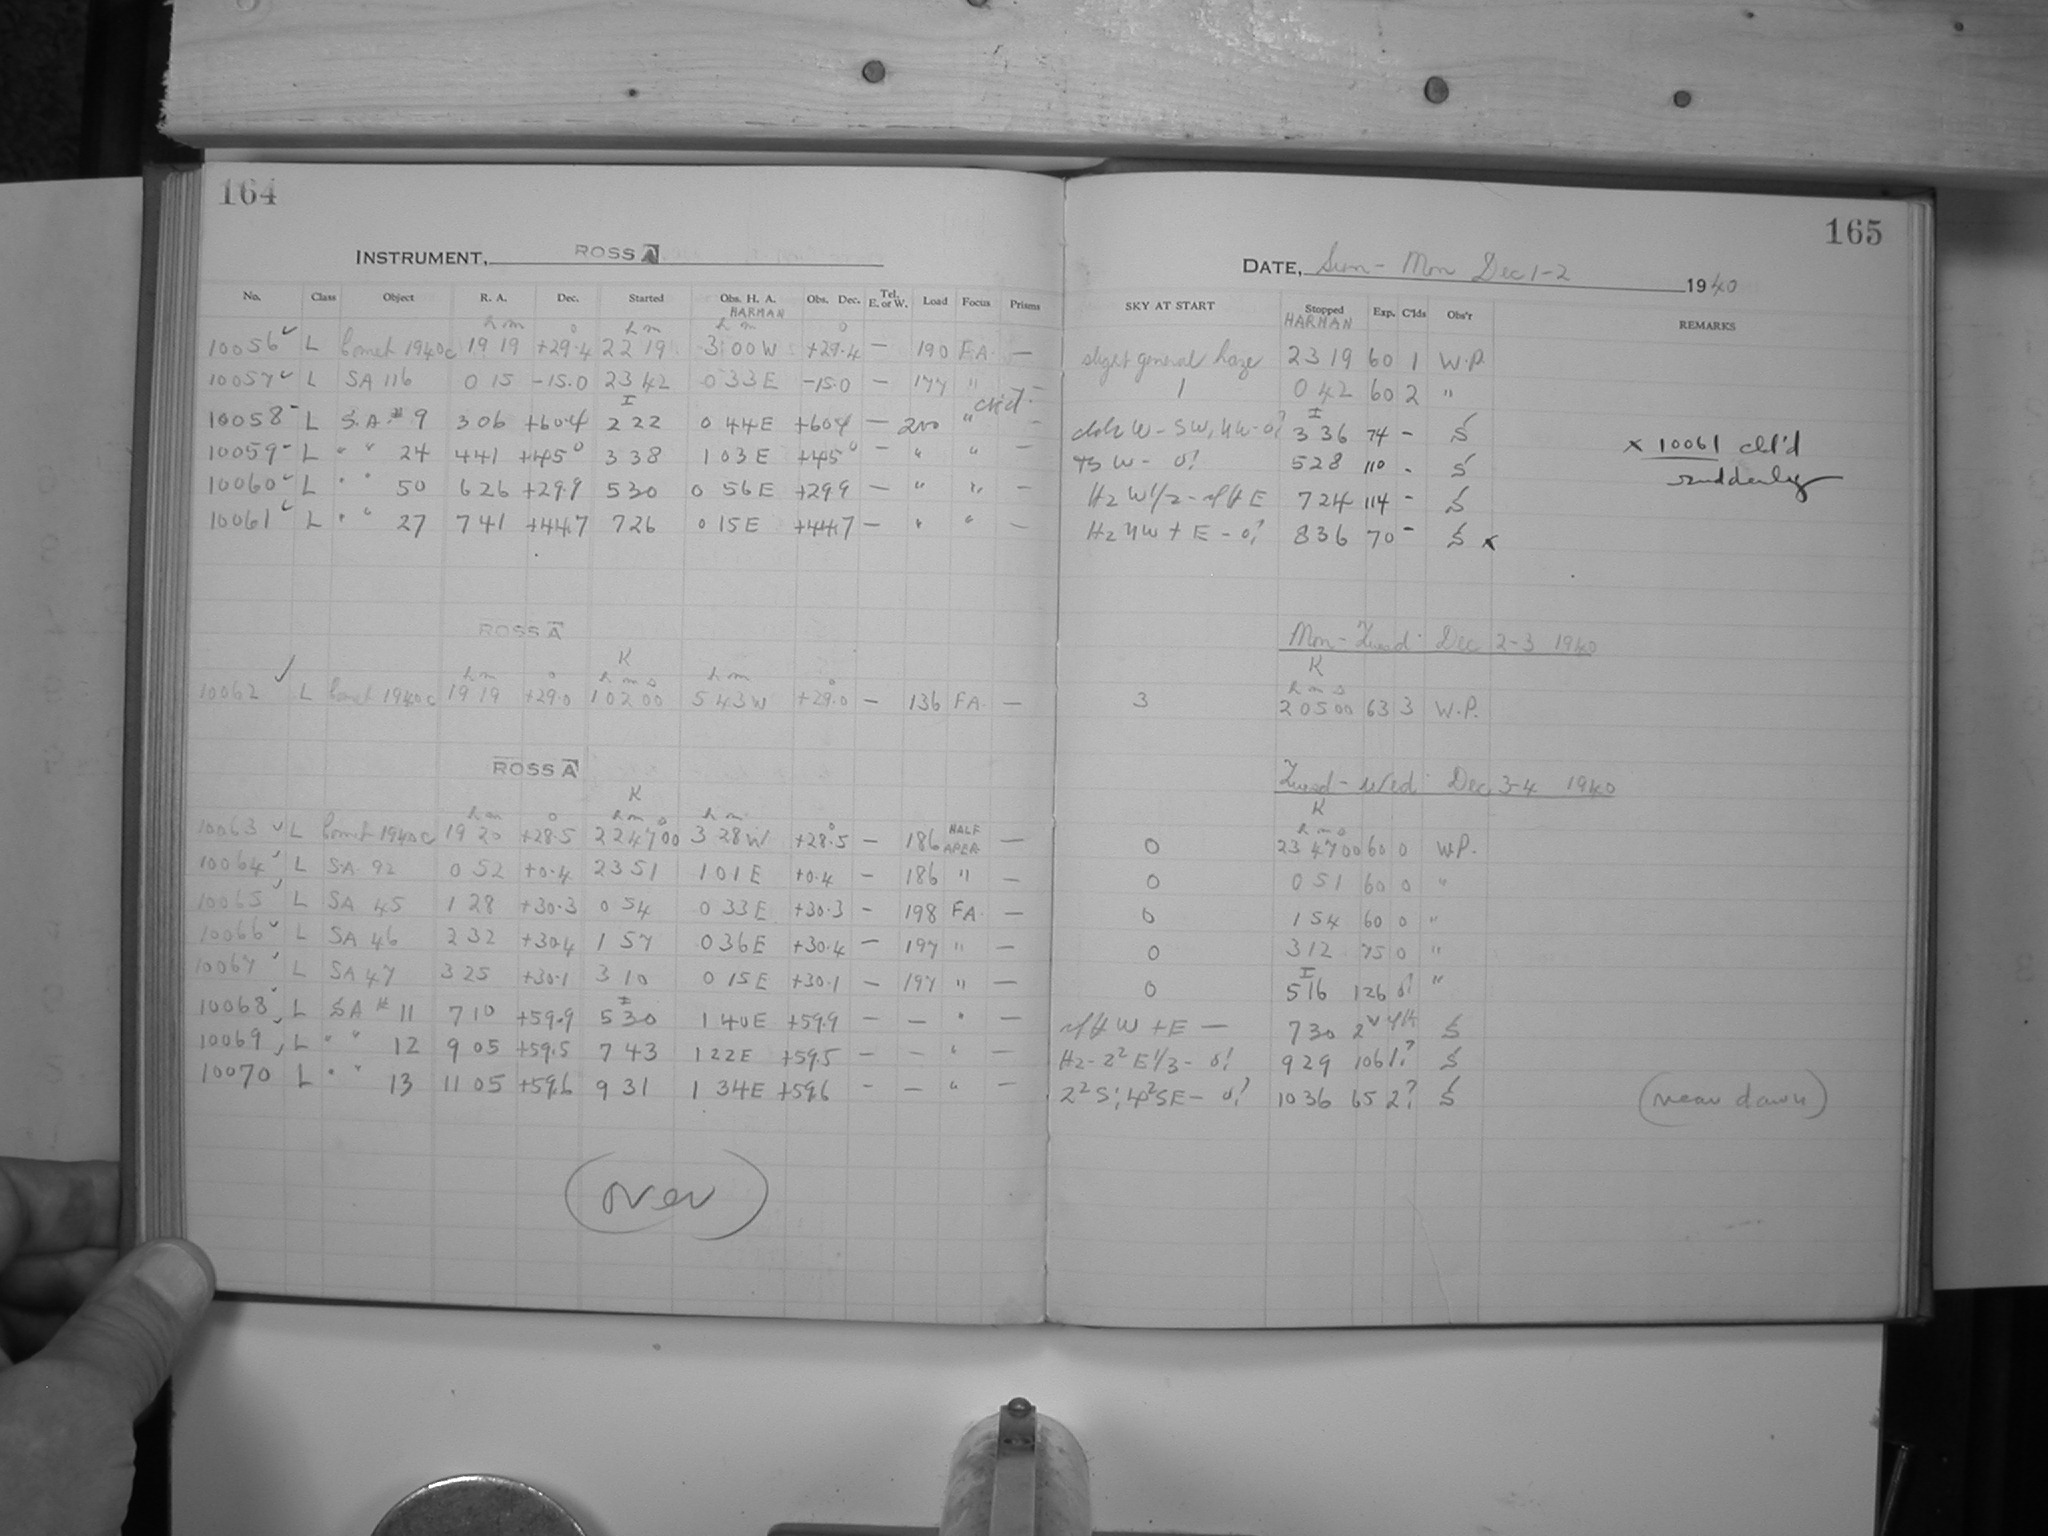 164
INSTRUMENT, ROSS A
No. Class Object R. A. Dec. Started Obs. H. A. Obs. Dec. Tel. E. or W. Load Focus Prisms
HARMAN
h m ° h m h m °
10056 L Comet 1940c 19 19 +29.4 22 19 3 00 W +29.4 — 190 FA. —
10057 L SA 116 0 15 -15.0 23 42 0 33 E -15.0 — 177 " —
10058 L S.A. # 9 3 06 +60.4 2 22 0 44 E +60.4 — 200 " —
10059 L " " 24 4 41 +45° 3 38 1 03 E +45° — " " —
10060 L " " 50 6 26 +29.9 5 30 0 56 E +29.9 — " " —
10061 L " " 27 7 41 +44.7 7 26 0 15 E +44.7 — " " —
ROSS A
K
h m ° h m s h m °
10062 L Comet 1940c 19 19 +29.0 1 02 00 5 43 W +29.0 — 136 FA. —
ROSS A
K
h m ° h m s h m °
10063 L Comet 1940c 19 20 +28.5 22 47 00 3 28 W +28.5 — 186 HALF APER. —
10064 L SA 92 0 52 +0.4 23 51 1 01 E +0.4 — 186 " —
10065 L SA 45 1 28 +30.3 0 54 0 33 E +30.3 — 198 FA. —
10066 L SA 46 2 32 +30.4 1 57 0 36 E +30.4 — 197 " —
10067 L SA 47 3 25 +30.1 3 10 0 15 E +30.1 — 197 " —
10068 L SA # 11 7 10 +59.9 5 30 1 40 E +59.9 — — " —
10069 L " " 12 9 05 +59.5 7 43 1 22 E +59.5 — — " —
10070 L " " 13 11 05 +59.6 9 31 1 34 E +59.6 — — " —
(over)
165
DATE, Sun - Mon Dec 1-2 1940
SKY AT START Stopped Exp. C'lds Obs'r REMARKS
HARMAN
slight general haze 23 19 60 1 W.P.
1 0 42 60 2 "
W - SW, 3 36 74 - S
W - 0? 5 28 110 - S
Hz W 1/2 - E 7 24 114 - S
Hz NW + E - 0? 8 36 70 - S x
x 10061 cld'd
suddenly
Mon - Tuesd. Dec 2-3 1940
K
h m s
3 2 05 00 63 3 W.P.
Tuesd - Wed. Dec 3-4 1940
K
h m s
0 23 47 00 60 0 W.P.
0 0 51 60 0 "
0 1 54 60 0 "
0 3 12 75 0 "
0 5 16 126 0? "
W + E — 7 30 S
Hz - 2² E 1/3 - 0? 9 29 106 1? S
2² S; SE - 0? 10 36 65 2? S (near dawn)